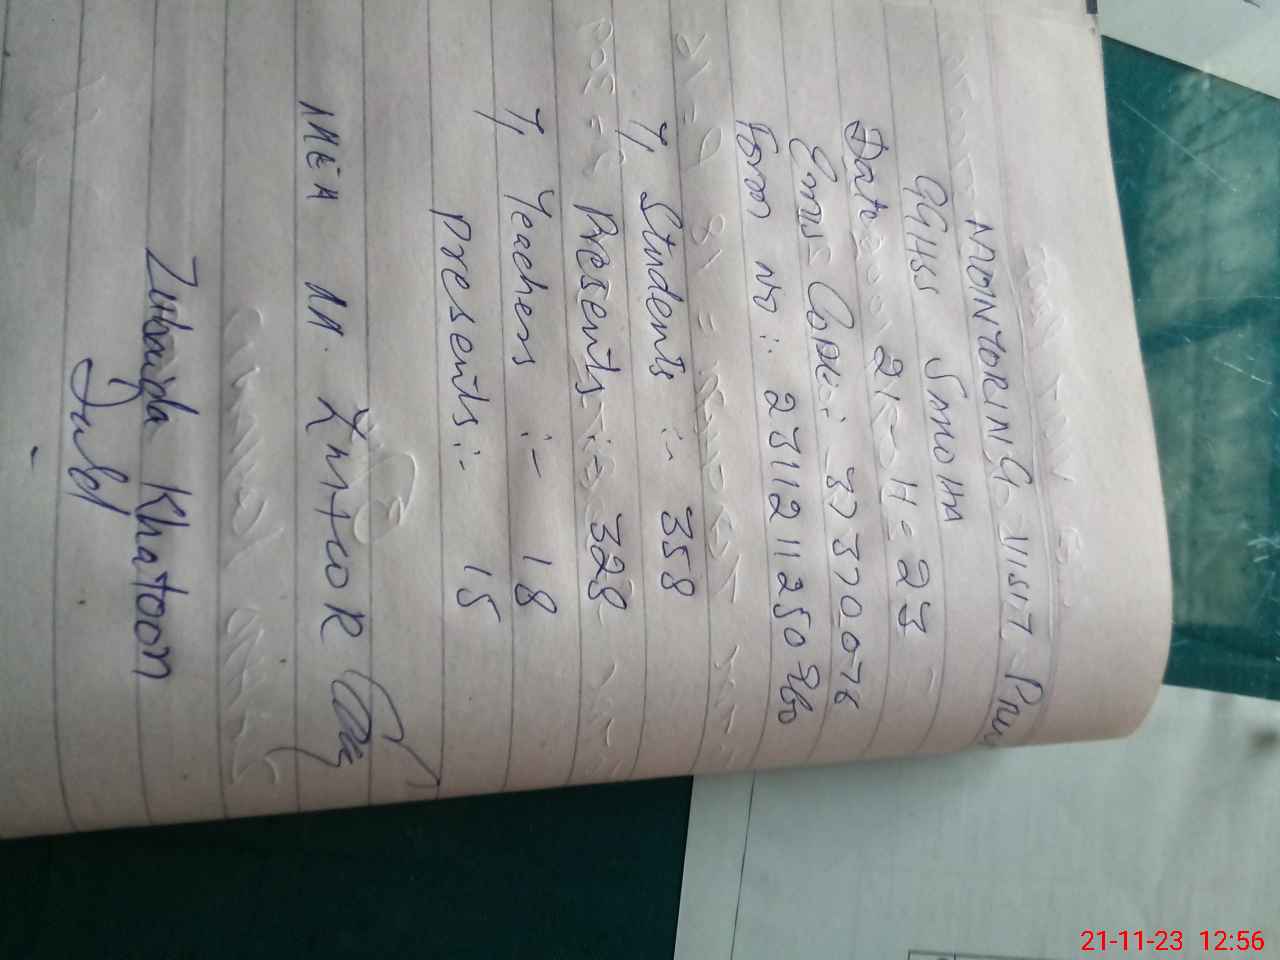 MOINTORING VISIT
GGHSS Smmoha
Date 21-11-23
Emis Code:- 37370076
Form No:- 231121125036
T, Students :- 358
Presents :- 328
T, Teachers :- 18
Presents :- 15
MEA M. 
Zubaida Khatoon
21-11-23 12:56